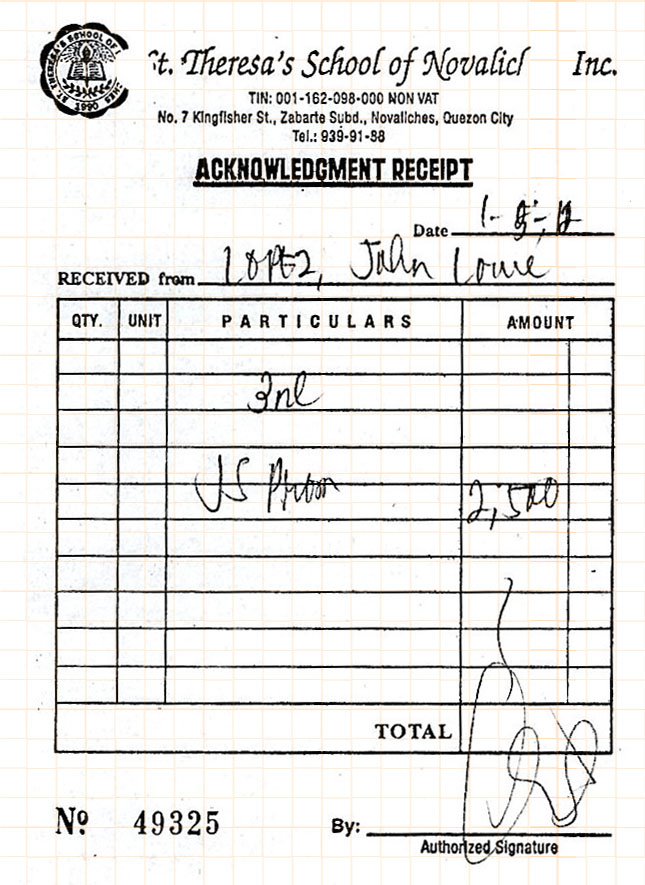 ST. THERESA'S SCHOOL OF
1990
St. Theresa's School of Novalicl Inc.
TIN: 001-162-098-000 NON VAT
No. 7 Kingfisher St., Zabarte Subd., Novaliches, Quezon City
Tel.: 939-91-88
ACKNOWLEDGMENT RECEIPT
Date 1-
RECEIVED from Lopez, John Lowie
QTY. UNIT PARTICULARS AMOUNT
JS Prom 2,500
TOTAL
Nº 49325 By:
Authorized Signature